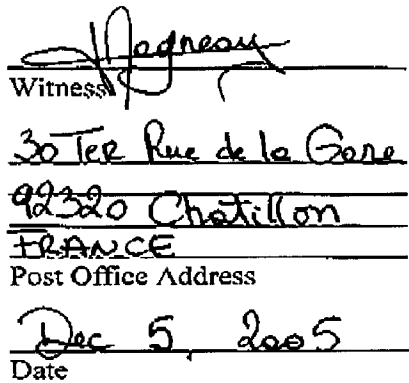 Witness
30 Ter Rue de la Gare
92320 Chatillon
FRANCE
Post Office Address
Dec 5, 2005
Date